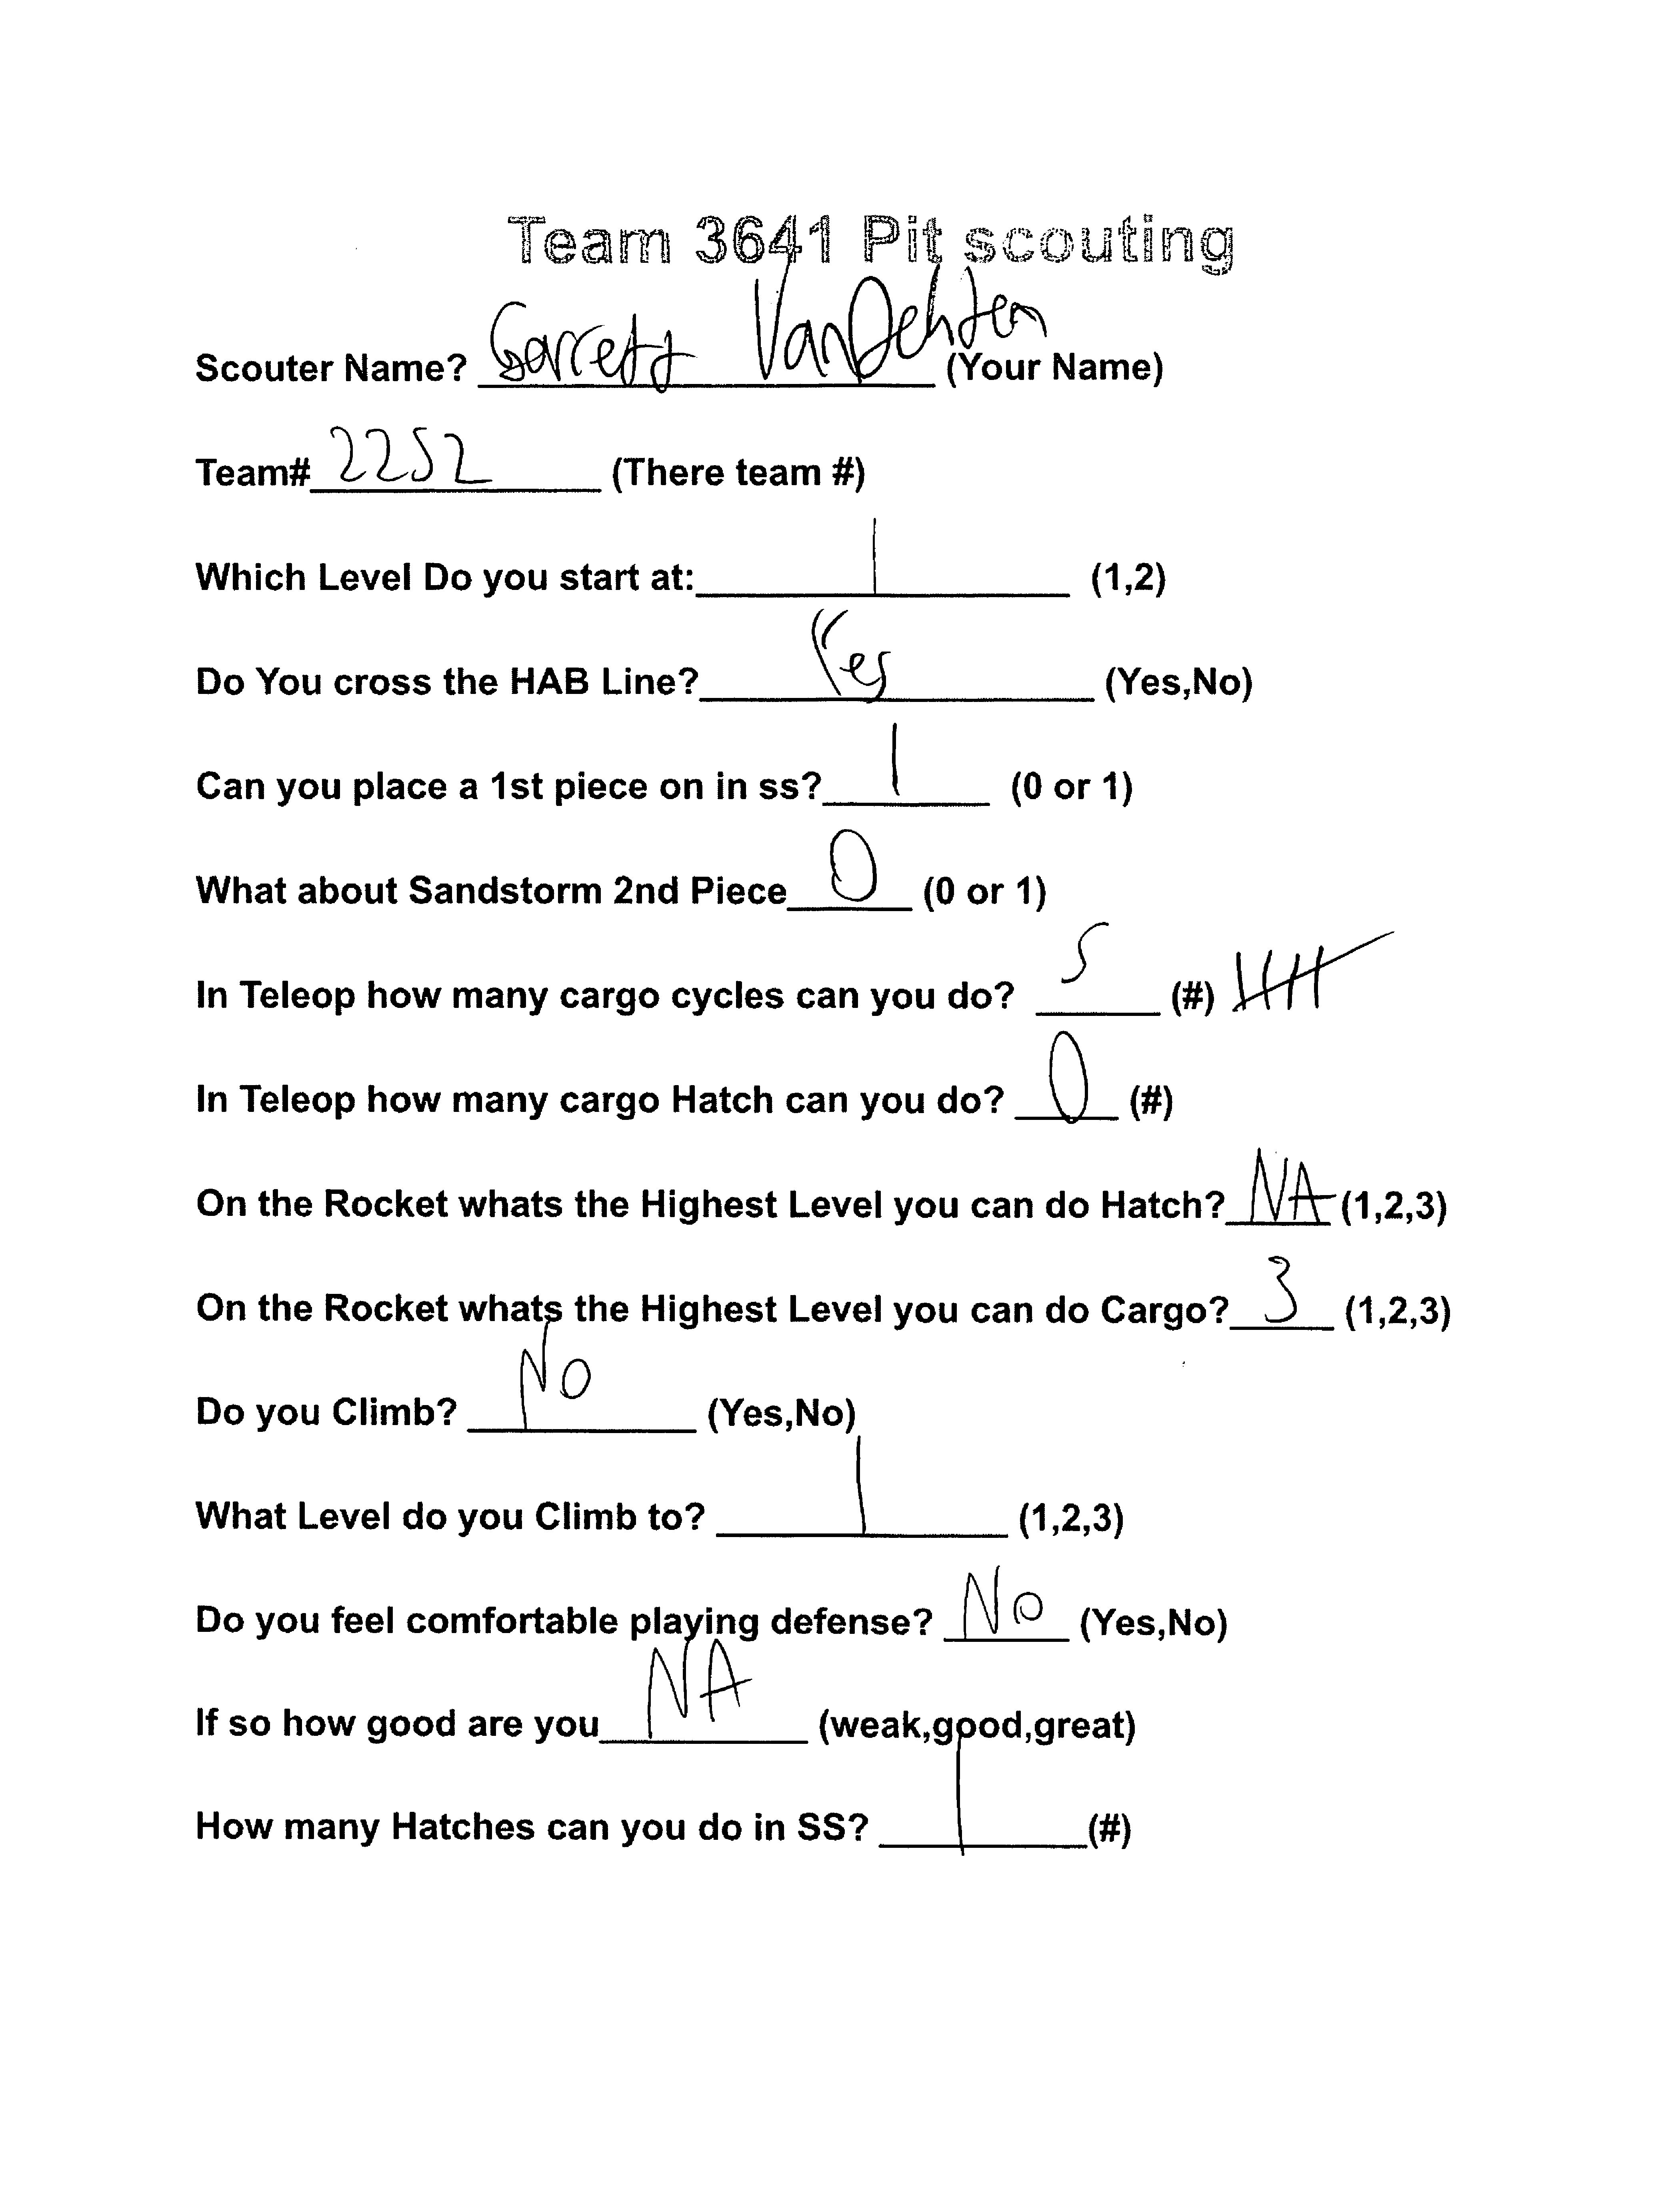 Team 3641 Pit scouting
Scouter Name? Garrett (Your Name)
Team# 2252 (There team #)
Which Level Do you start at: 1 (1,2)
Do You cross the HAB Line? Yes (Yes,No)
Can you place a 1st piece on in ss? 1 (0 or 1)
What about Sandstorm 2nd Piece 0 (0 or 1)
In Teleop how many cargo cycles can you do? 5 (#)
In Teleop how many cargo Hatch can you do? 0 (#)
On the Rocket whats the Highest Level you can do Hatch? NA (1,2,3)
On the Rocket whats the Highest Level you can do Cargo? 3 (1,2,3)
Do you Climb? No (Yes,No)
What Level do you Climb to? 1 (1,2,3)
Do you feel comfortable playing defense? No (Yes,No)
If so how good are you NA (weak,good,great)
How many Hatches can you do in SS? 1 (#)